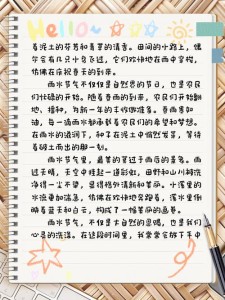 Hello~
着泥土的芬芳和青草的清香。田间的小路上,偶
尔会有几只小鸟飞过,它们欢快地在雨中穿梭,
仿佛在庆祝春天的到来。
雨水节气不仅仅是自然界的节日,也是农民
们忙碌的开始。随着春雨的到来,农民们开始翻
地、播种,为新一年的丰收做准备。春雨贵如
油,每一滴雨水都承载着农民们的希望和梦想。
在雨水的滋润下,种子在泥土中悄然发芽,等待
着破土而出的那一刻。
雨水节气里,最美的莫过于雨后的景色。雨
过天晴,天空中挂起一道彩虹,田野和山川被洗
净得一尘不染,显得格外清新和美丽。小溪里的
水流更加湍急,仿佛在欢快地奔跑着,溪水里倒
映着蓝天和白云,构成了一幅美丽的画卷。
雨水节气,不仅是大自然的恩赐,也是我们
心灵的洗涤。在这段时间里,我常常会放下手中